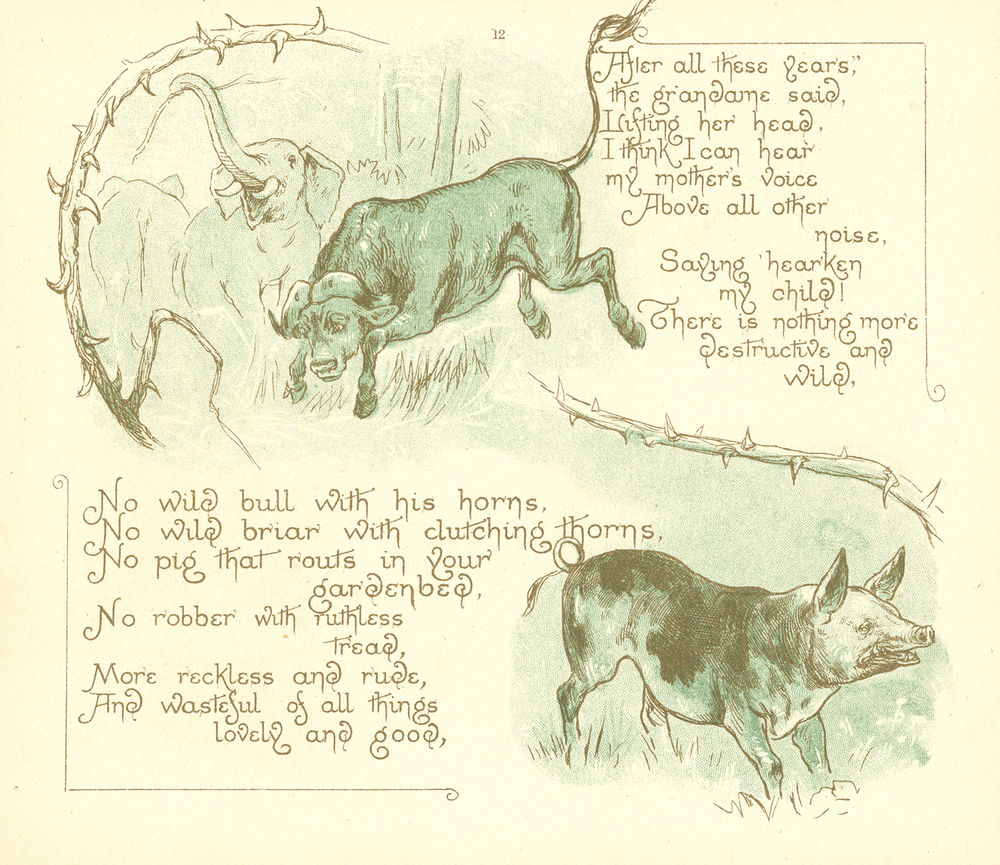 12
"After all these years,"
the grandame said,
Lifting her head,
I think I can hear
my mother's voice
Above all other
noise,
Saying 'hearken
my child!
There is nothing more
destructive and
wild,
No wild bull with his horns,
No wild briar with clutching thorns,
No pig that routs in your
gardenbed,
No robber with ruthless
tread,
More reckless and rude,
And wasteful of all things
lovely and good,